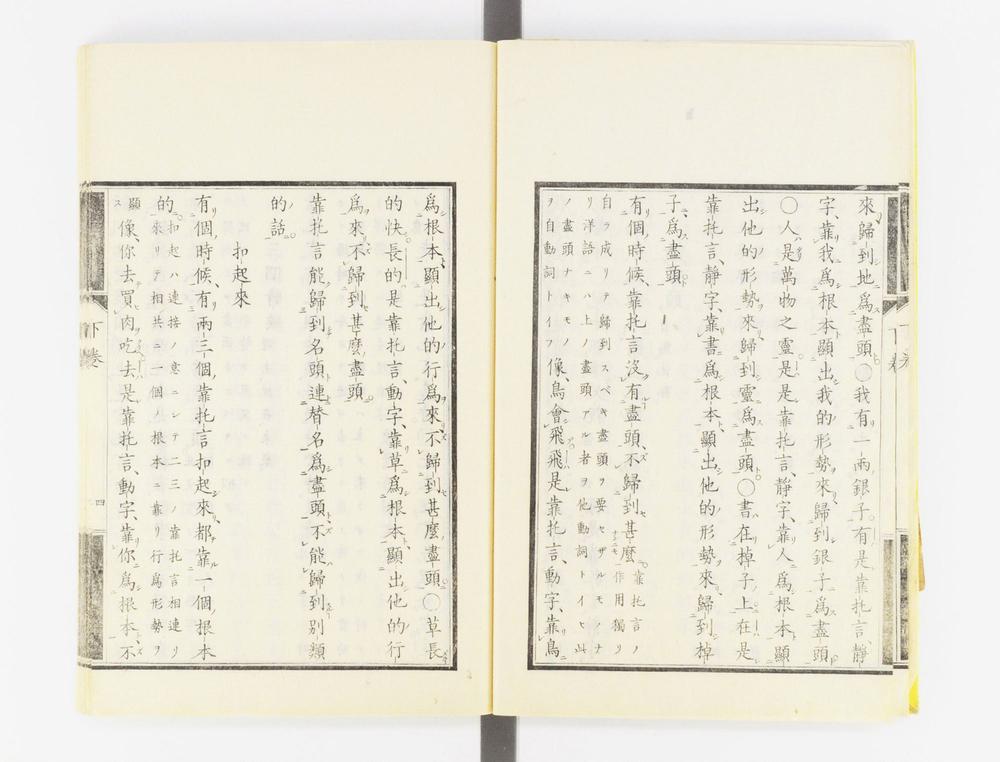 來、歸到地爲盡頭。〇我有一兩銀子。有是靠托言、靜
字、靠我爲根本、顯出我的形勢來、歸到銀子爲盡頭
〇人是萬物之靈。是是靠托言、靜字、靠人爲根本、顯
出他的形勢來歸到靈爲盡頭。〇書在棹子上。在是
靠托言、靜字、靠書爲根本、顯出他的形勢來、歸到棹
子、爲盡頭。
有個時候、靠托言沒有盡頭、不歸到甚麼。靠托言ノ作用獨リ
自ラ成リテ歸到スベキ盡頭ヲ要セザルモノナ
リ洋語ニハ上ノ盡頭アル者ヲ他動詞トイヒ此
ノ盡頭ナキモノヲ自動詞トイフ像、鳥會飛、飛是靠托言、動字、靠鳥
爲根本、顯出他的行爲來、不歸到甚麼盡頭。〇草長
的快。長的是靠托言、動字、靠草爲根本、顯出他的行
爲來不歸到甚麼盡頭。
靠托言能歸到名頭連替名爲盡頭、不能歸到別類
的話。
扣起來
有個時候、有兩三個靠托言扣起來、都靠一個根本
的。扣起ハ連接ノ意ニシテ二三ノ靠托言相連リ
來リテ相共ニ一個ノ根本ニ靠リ行爲形勢ヲ
顯ス像你去買肉吃、去是靠托言、動字、靠你爲根本、不
下卷
四
下卷